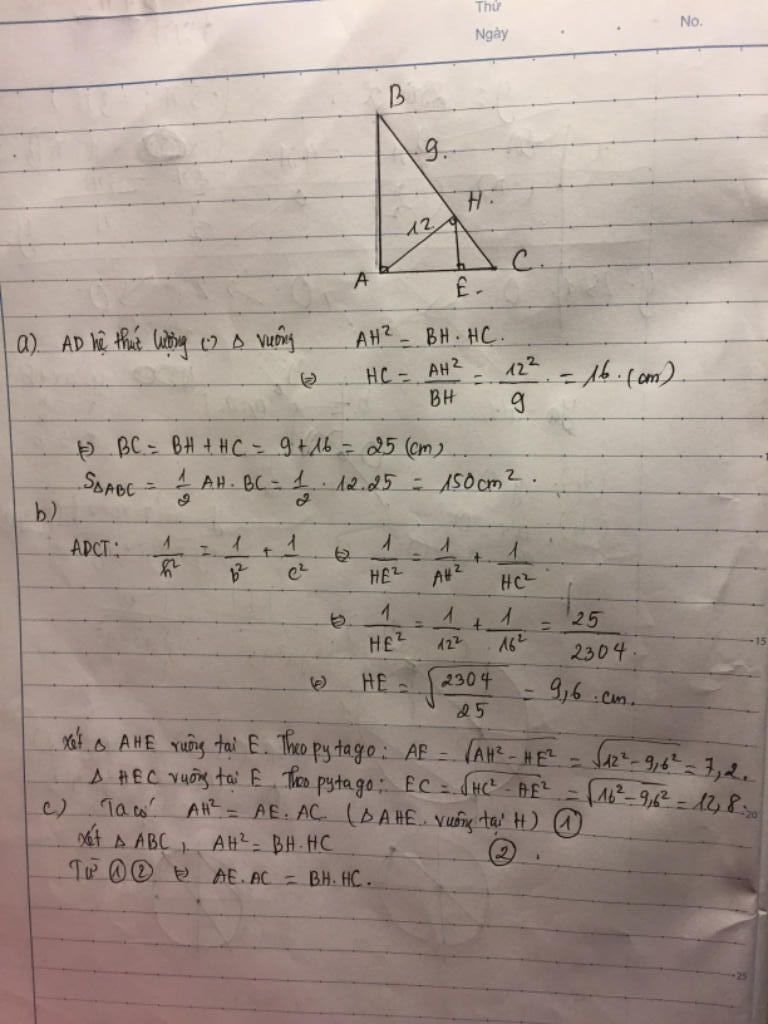 Thứ
Ngày
No.
B
9.
H.
12
A
E.
C.
a) AD hệ thức lượng (-) Δ vuông AH² = BH.HC.
⇔ HC = AH²/BH = 12²/9 = 16.(cm)
⇔ BC = BH + HC = 9+16 = 25 (cm)
SΔABC = 1/2 AH.BC = 1/2 . 12.25 = 150cm².
b)
ADCT: 1/h² = 1/b² + 1/c² ⇔ 1/HE² = 1/AH² + 1/HC²
⇔ 1/HE² = 1/12² + 1/16² = 25/2304.
⇔ HE = √(2304/25) = 9,6.cm.
Xét Δ AHE vuông tại E. Theo pytago: AE = √(AH² - HE²) = √(12² - 9,6²) = 7,2.
Δ HEC vuông tại E. Theo pytago: EC = √(HC² - HE²) = √(16² - 9,6²) = 12,8.
c) Ta có AH² = AE.AC. (Δ AHE vuông tại H) ①
Xét Δ ABC, AH² = BH.HC ②.
Từ ①② ⇔ AE.AC = BH.HC.
15
20
25